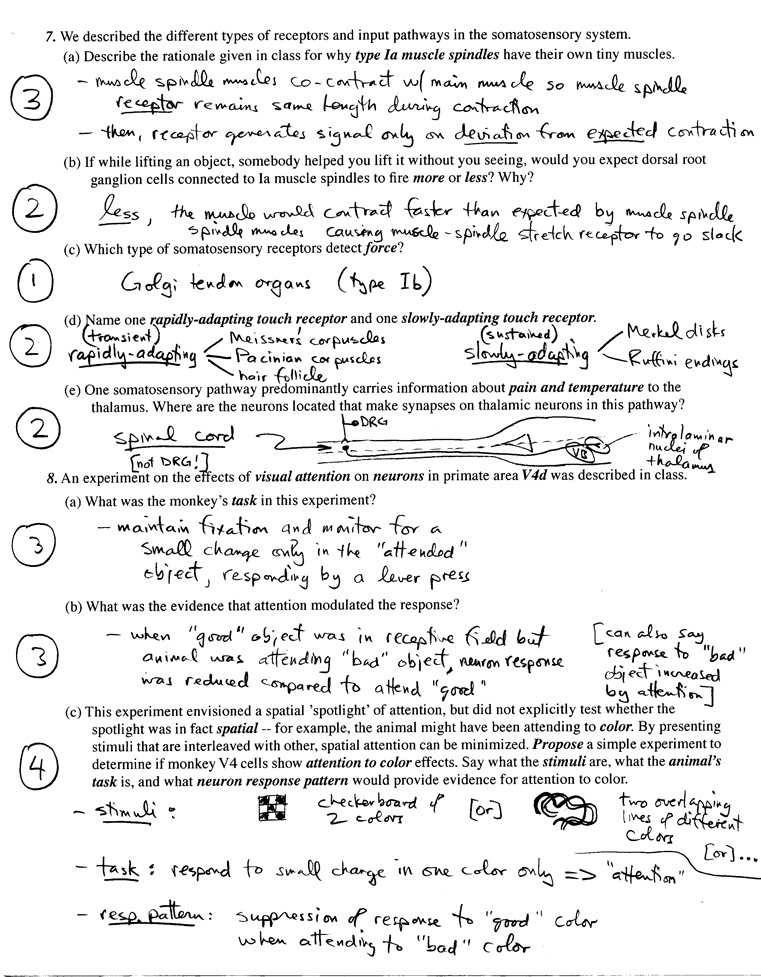 7. We described the different types of receptors and input pathways in the somatosensory system.
(a) Describe the rationale given in class for why type Ia muscle spindles have their own tiny muscles.
③
- muscle spindle muscles co-contract w/ main muscle so muscle spindle
receptor remains same length during contraction
- then, receptor generates signal only on deviation from expected contraction
(b) If while lifting an object, somebody helped you lift it without you seeing, would you expect dorsal root
ganglion cells connected to Ia muscle spindles to fire more or less? Why?
②
less, the muscle would contract faster than expected by muscle spindle
spindle muscles causing muscle-spindle stretch receptor to go slack
(c) Which type of somatosensory receptors detect force?
①
Golgi tendon organs (type Ib)
(d) Name one rapidly-adapting touch receptor and one slowly-adapting touch receptor.
②
(transient)
rapidly-adapting
Meissners corpuscles
Pacinian corpuscles
hair follicle
(sustained)
slowly-adapting
Merkel disks
Ruffini endings
(e) One somatosensory pathway predominantly carries information about pain and temperature to the
thalamus. Where are the neurons located that make synapses on thalamic neurons in this pathway?
②
spinal cord
[not DRG!]
DRG
VB
intralaminar
nuclei of
thalamus
8. An experiment on the effects of visual attention on neurons in primate area V4d was described in class.
(a) What was the monkey's task in this experiment?
③
- maintain fixation and monitor for a
small change only in the "attended"
object, responding by a lever press
(b) What was the evidence that attention modulated the response?
③
- when "good" object was in receptive field but
animal was attending "bad" object, neuron response
was reduced compared to attend "good"
[can also say
response to "bad"
object increased
by attention]
(c) This experiment envisioned a spatial 'spotlight' of attention, but did not explicitly test whether the
spotlight was in fact spatial -- for example, the animal might have been attending to color. By presenting
stimuli that are interleaved with other, spatial attention can be minimized. Propose a simple experiment to
determine if monkey V4 cells show attention to color effects. Say what the stimuli are, what the animal's
task is, and what neuron response pattern would provide evidence for attention to color.
④
- stimuli:
checkerboard of
2 colors
[or]
two overlapping
lines of different
colors
[or]...
- task: respond to small change in one color only => "attention"
- resp. pattern: suppression of response to "good" color
when attending to "bad" color